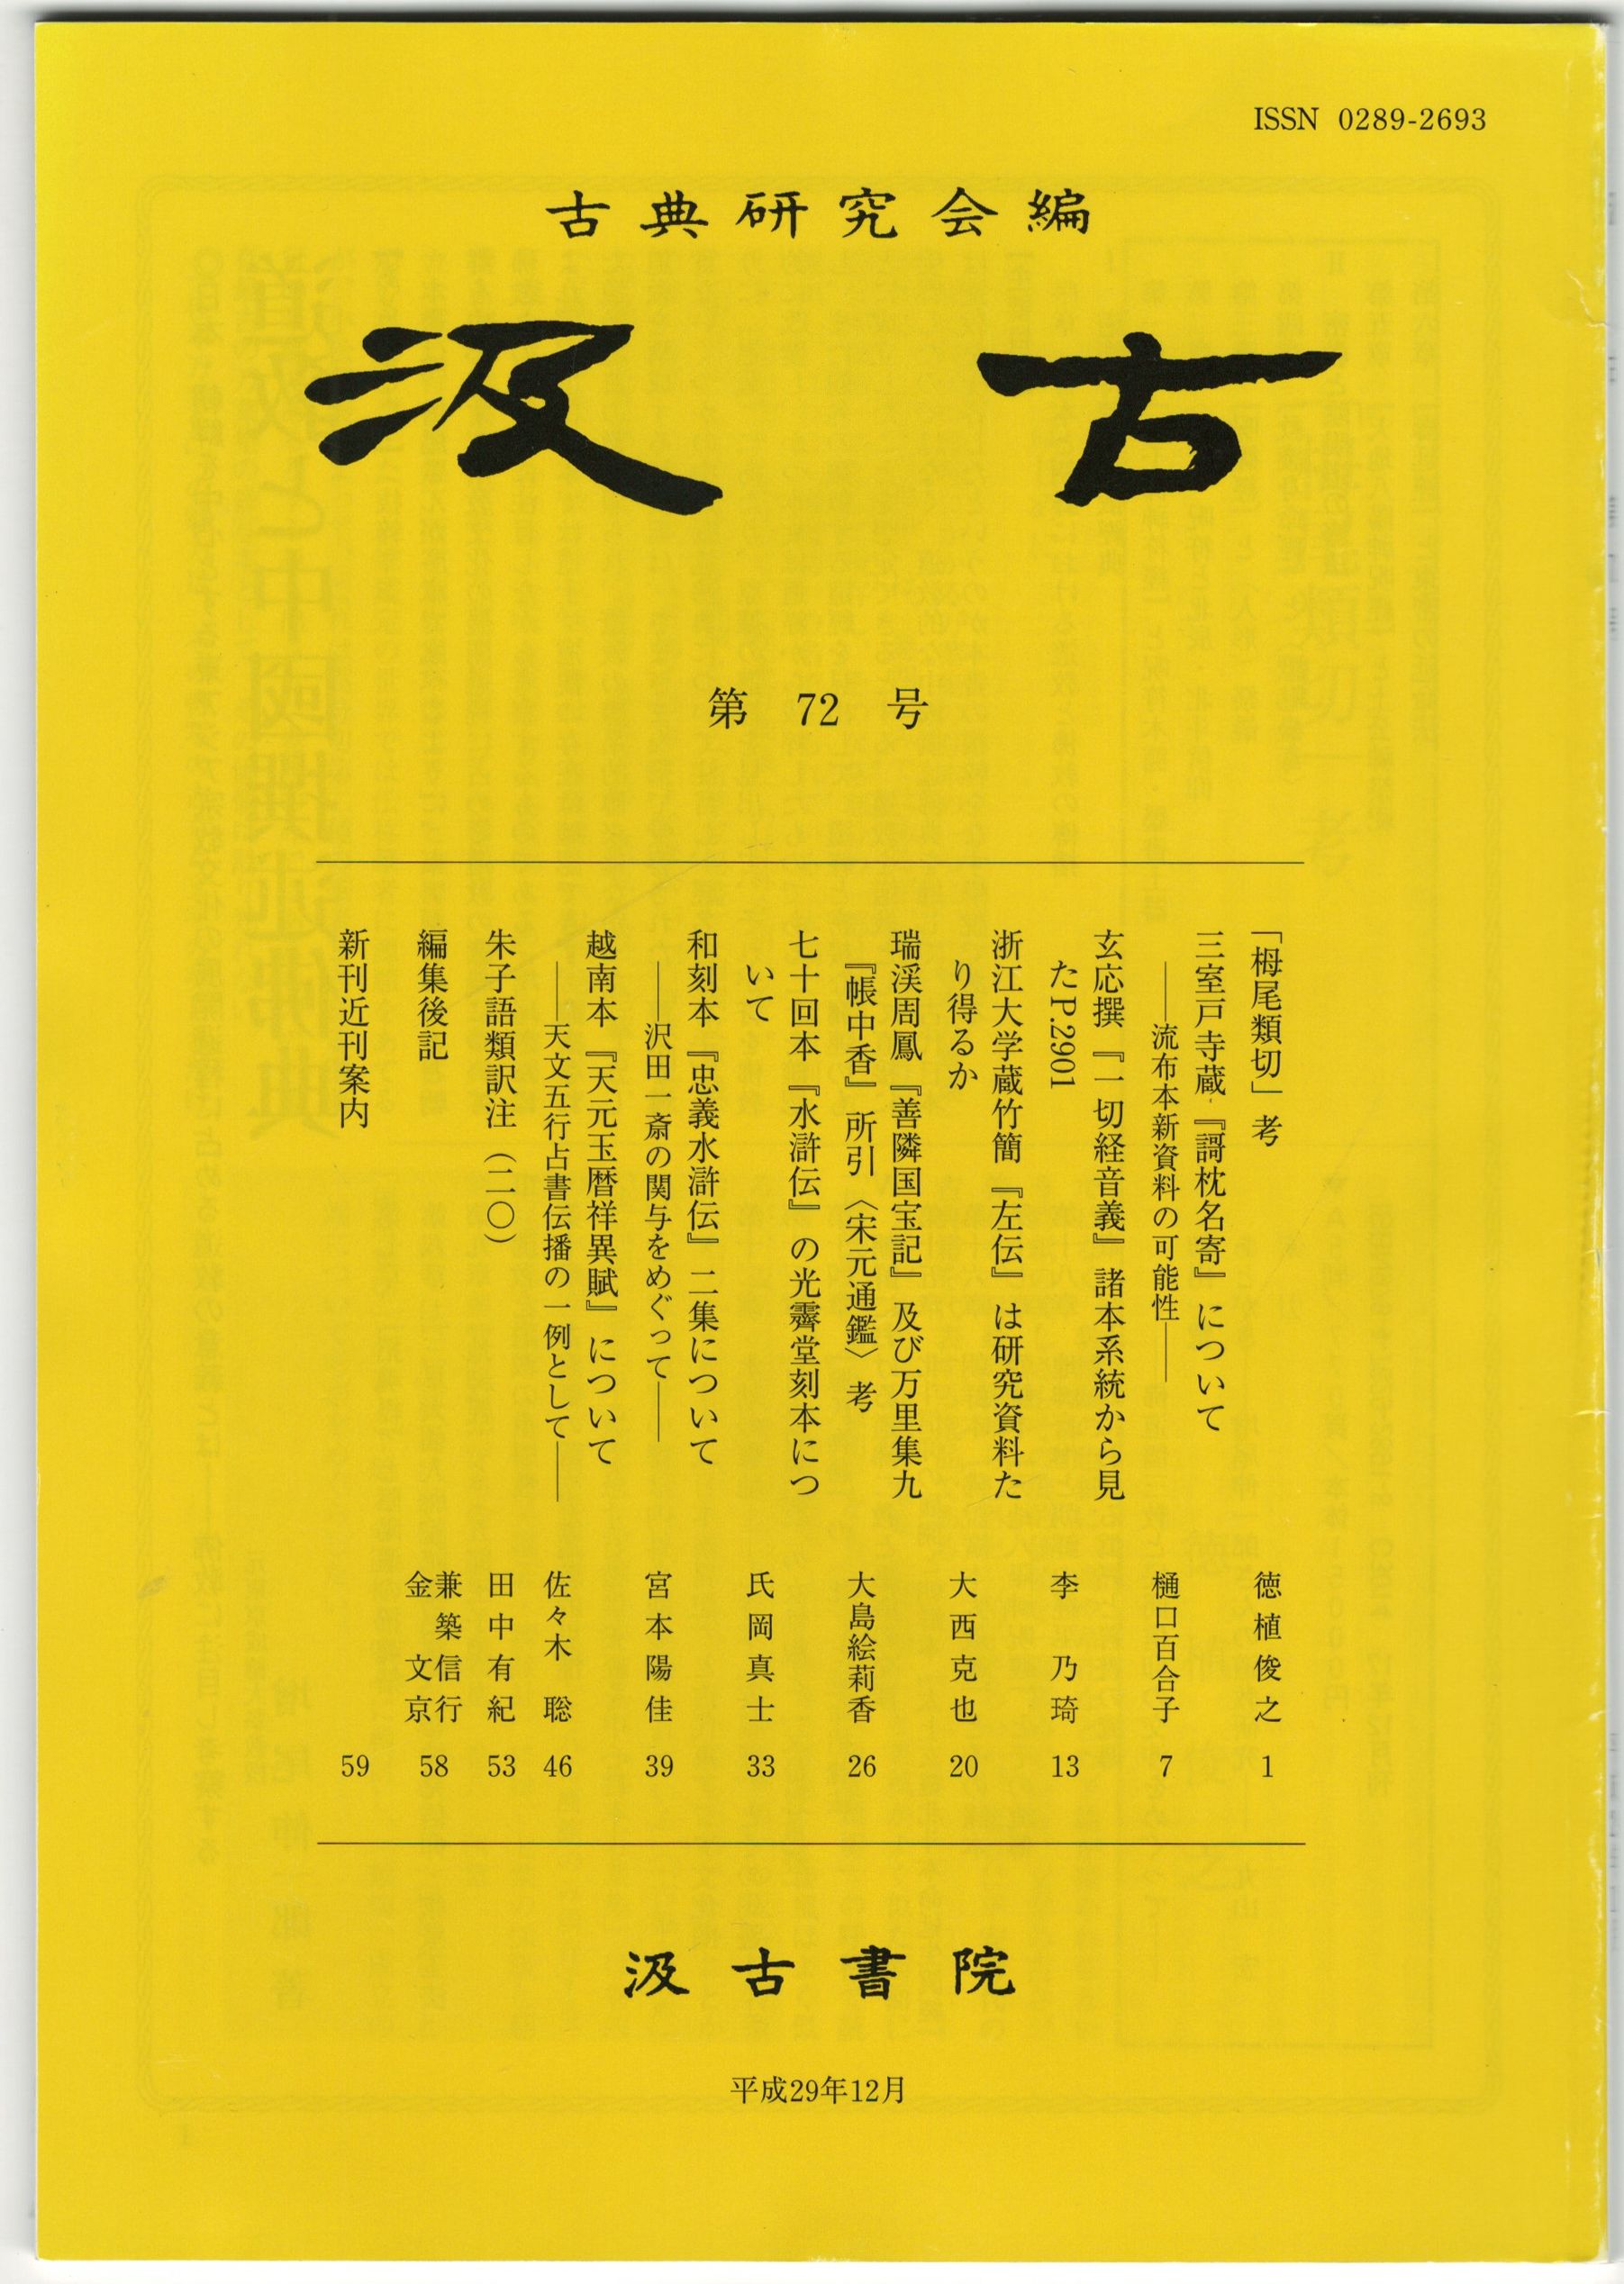 ISSN 0289-2693
古典研究会編
汲古
第 72 号
「栂尾類切」考 徳植俊之 1
三室戸寺蔵『謌枕名寄』について
――流布本新資料の可能性―― 樋口百合子 7
玄応撰『一切経音義』諸本系統から見
たP.2901 李乃琦 13
浙江大学蔵竹簡『左伝』は研究資料た
り得るか 大西克也 20
瑞渓周鳳『善隣国宝記』及び万里集九
『帳中香』所引〈宋元通鑑〉考 大島絵莉香 26
七十回本『水滸伝』の光霽堂刻本につ
いて 氏岡真士 33
和刻本『忠義水滸伝』二集について
――沢田一斎の関与をめぐって―― 宮本陽佳 39
越南本『天元玉暦祥異賦』について
――天文五行占書伝播の一例として―― 佐々木聡 46
朱子語類訳注（二〇） 田中有紀 53
編集後記 兼築信行
金文京 58
新刊近刊案内 59
汲古書院
平成29年12月